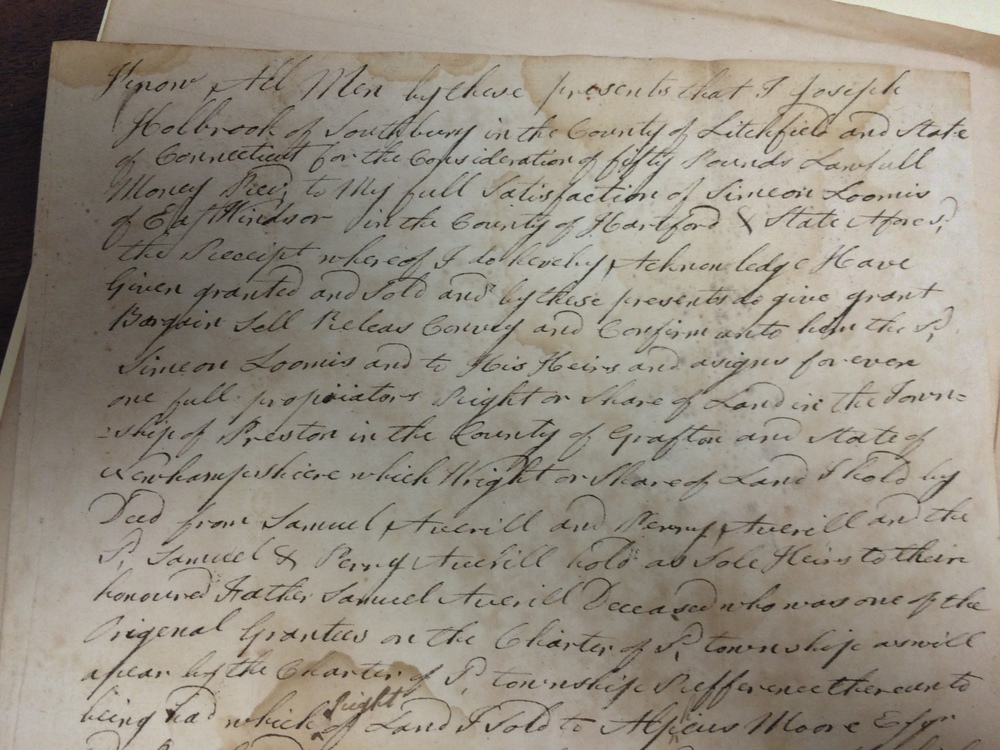 Know All Men by these presents that I Joseph
Holbrook of Southbury in the County of Litchfield and State
of Connecticut for the Consideration of fifty Pounds Lawfull
Money Recd. to My full Satisfaction of Simeon Loomis
of East Windsor in the County of Hartford & State Afores.d
the Receipt whereof I do hereby Acknowledge Have
Given granted and Sold and by these presents do give grant
Bargain Sell Releas Convey and Confirm unto him the Sd.
Simeon Loomis and to His Heirs and asigns for ever
one full propriators Right or Share of Land in the Town=
=ship of Preston in the County of Grafton and State of
Newhampshiere which Wright or Share of Land I hold by
Deed from Samuel Averill and Perry Averill and the
Sd. Samuel & Perry Averill hold as Sole Heirs to their
honoured Father Samuel Averill Deceased who was one of the
Origenal Grantees on the Charter of Sd. township as will
apear by the Charter of Sd. township Refference thereunto
being had which Right of Land I Sold to Moore Esqr